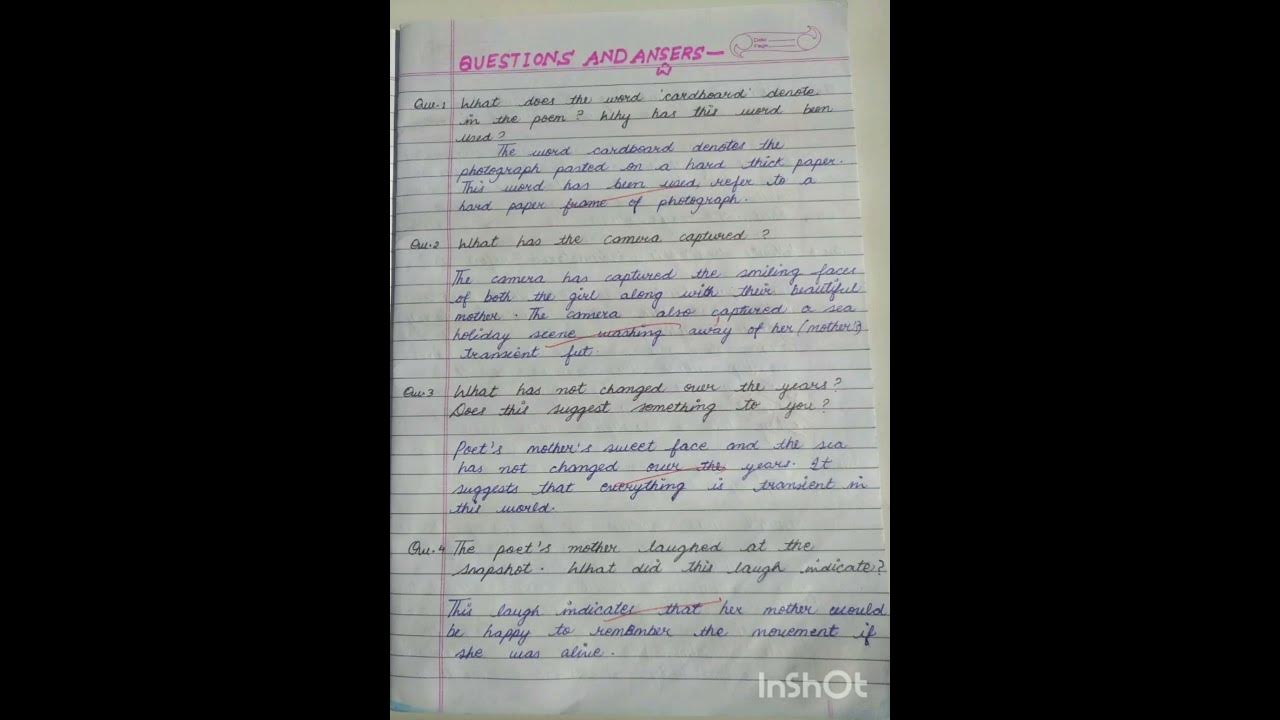 QUESTIONS AND ANSERS—
Date:
Page:
Que.1 What does the word 'cardboard' denote
in the poem? Why has this word been
used?
The word cardboard denotes the
photograph pasted on a hard thick paper.
This word has been used, refer to a
hard paper frame of photograph.
Que.2 What has the camera captured?
The camera has captured the smiling faces
of both the girl along with their beautiful
mother. The camera also captured a sea
holiday scene washing away of her (mother's)
transient fut.
Que.3 What has not changed over the years?
Does this suggest something to you?
Poet's mother's sweet face and the sea
has not changed over the years. It
suggests that everything is transient in
this world.
Que.4 The poet's mother laughed at the
snapshot. What did this laugh indicate?
This laugh indicates that her mother would
be happy to remember the movement if
she was alive.
InShOt